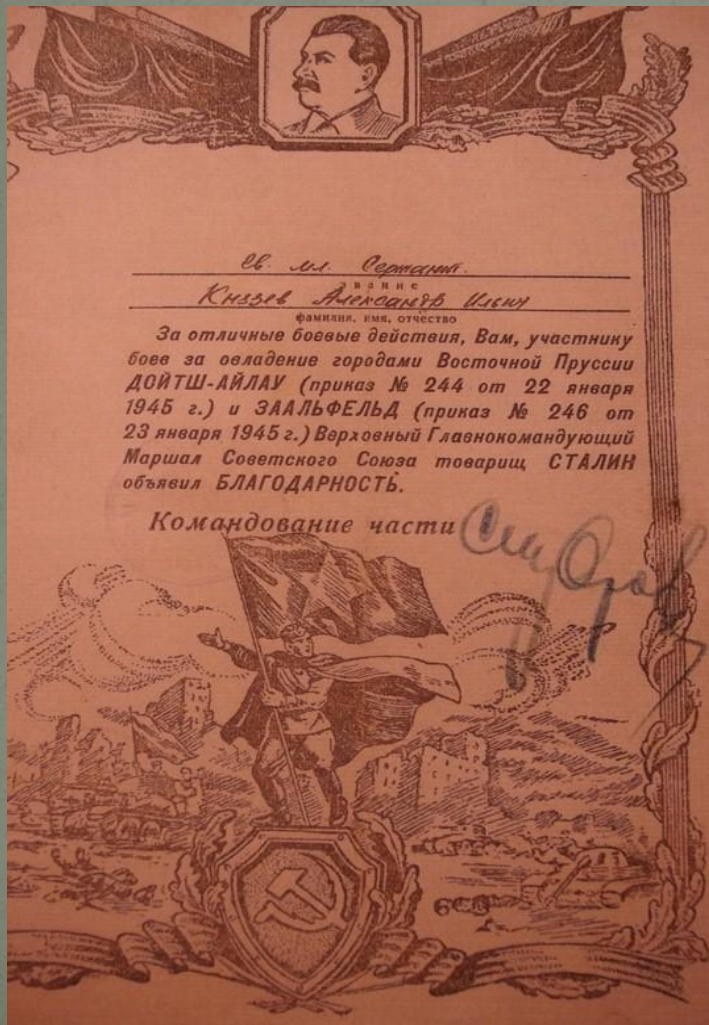 Гв. мл. Сержант.
звание
Князев Александр Ильич
фамилия, имя, отчество
За отличные боевые действия, Вам, участнику
боев за овладение городами Восточной Пруссии
ДОЙТШ-АЙЛАУ (приказ № 244 от 22 января
1945 г.) и ЗААЛЬФЕЛЬД (приказ № 246 от
23 января 1945 г.) Верховный Главнокомандующий
Маршал Советского Союза товарищ СТАЛИН
объявил БЛАГОДАРНОСТЬ.
Командование части